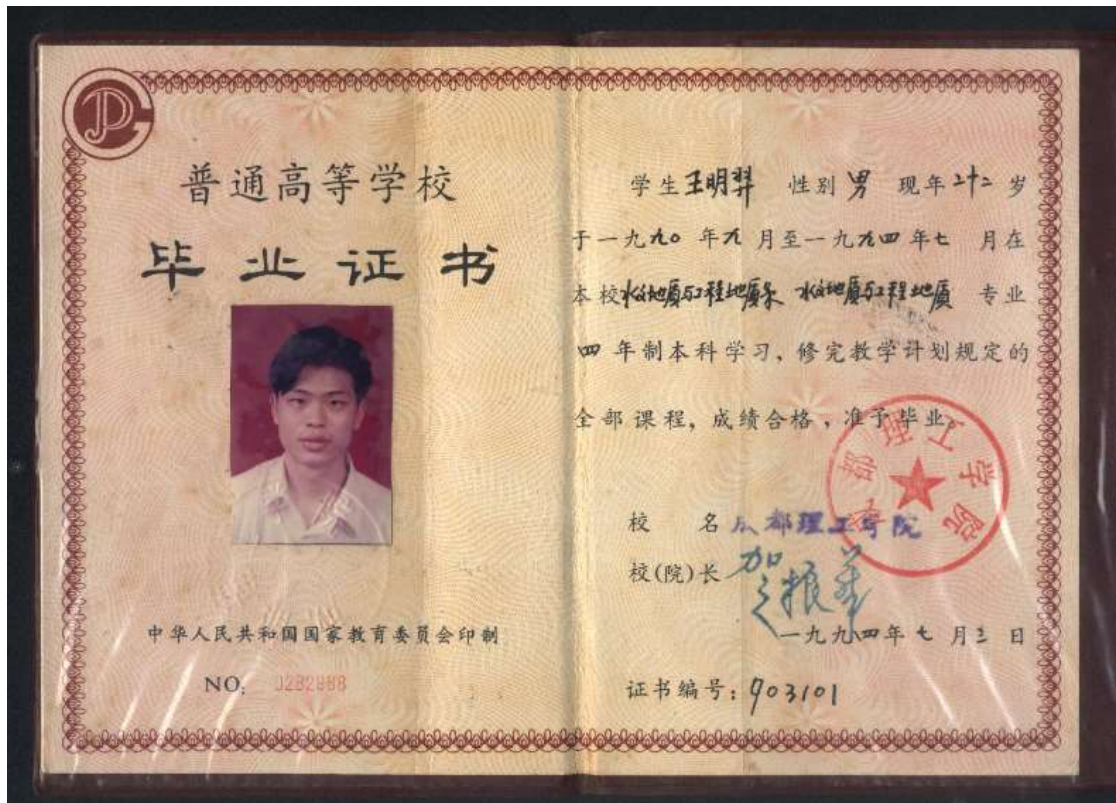 普通高等学校
毕业证书
中华人民共和国国家教育委员会印制
NO:
学生王明羿 性别男 现年二十二岁
于一九九〇年九月至一九九四年七月在
本校水文地质与工程地质系 水文地质与工程地质 专业
四年制本科学习，修完教学计划规定的
全部课程，成绩合格，准予毕业。
成都理工学院
校 名 成都理工学院
校(院)长 贺振华
一九九四年七月三日
证书编号：903101